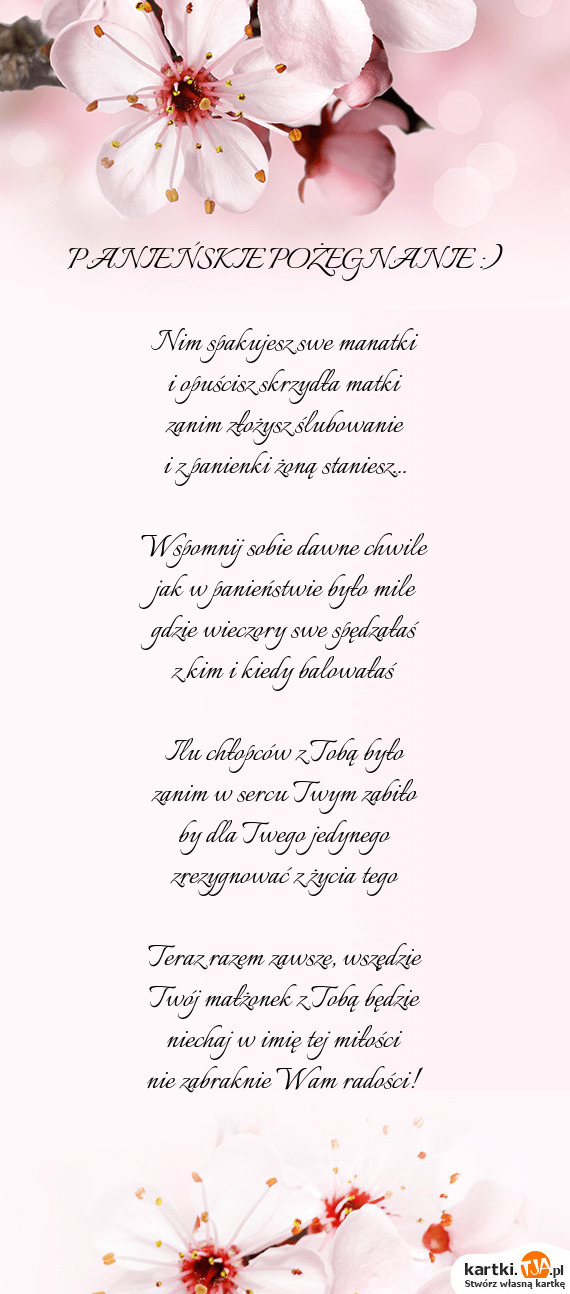 PANIEŃSKIE POŻEGNANIE :)
Nim spakujesz swe manatki
i opuścisz skrzydła matki
zanim złożysz ślubowanie
i z panienki żoną staniesz...
Wspomnij sobie dawne chwile
jak w panieństwie było mile
gdzie wieczory swe spędzałaś
z kim i kiedy balowałaś
Ilu chłopców z Tobą było
zanim w sercu Twym zabiło
by dla Twego jedynego
zrezygnować z życia tego
Teraz razem zawsze, wszędzie
Twój małżonek z Tobą będzie
niechaj w imię tej miłości
nie zabraknie Wam radości!
kartki.TJA.pl
Stwórz własną kartkę